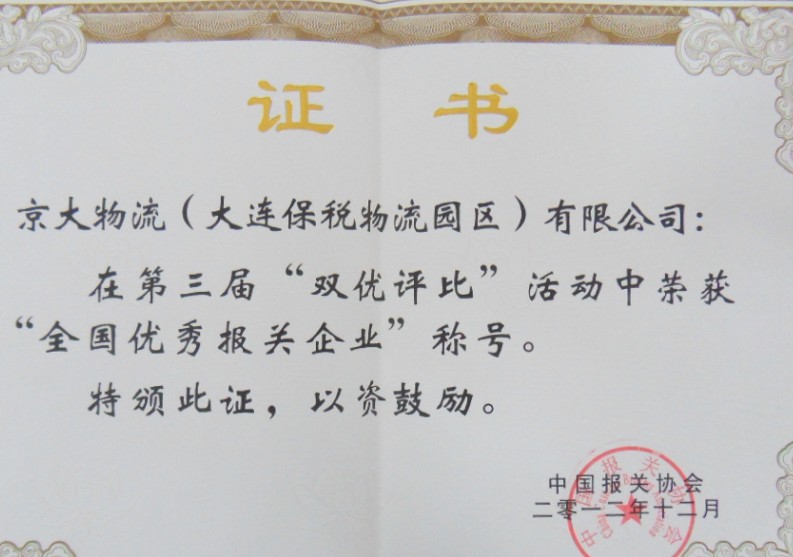 证 书
京大物流（大连保税物流园区）有限公司：
在第三届“双优评比”活动中荣获
“全国优秀报关企业”称号。
特颁此证，以资鼓励。
中国报关协会
二零一二年十二月
中国报关协会